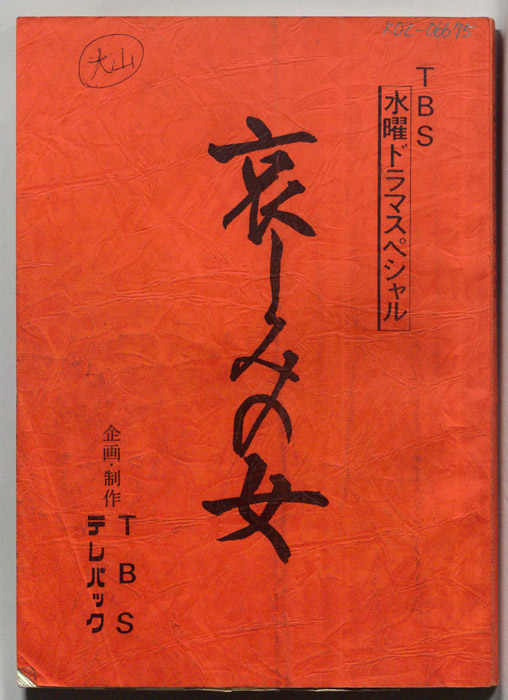 TBS
水曜ドラマスペシャル
哀しみの女
企画・制作
TBS
テレパック
大山
KDE-06675